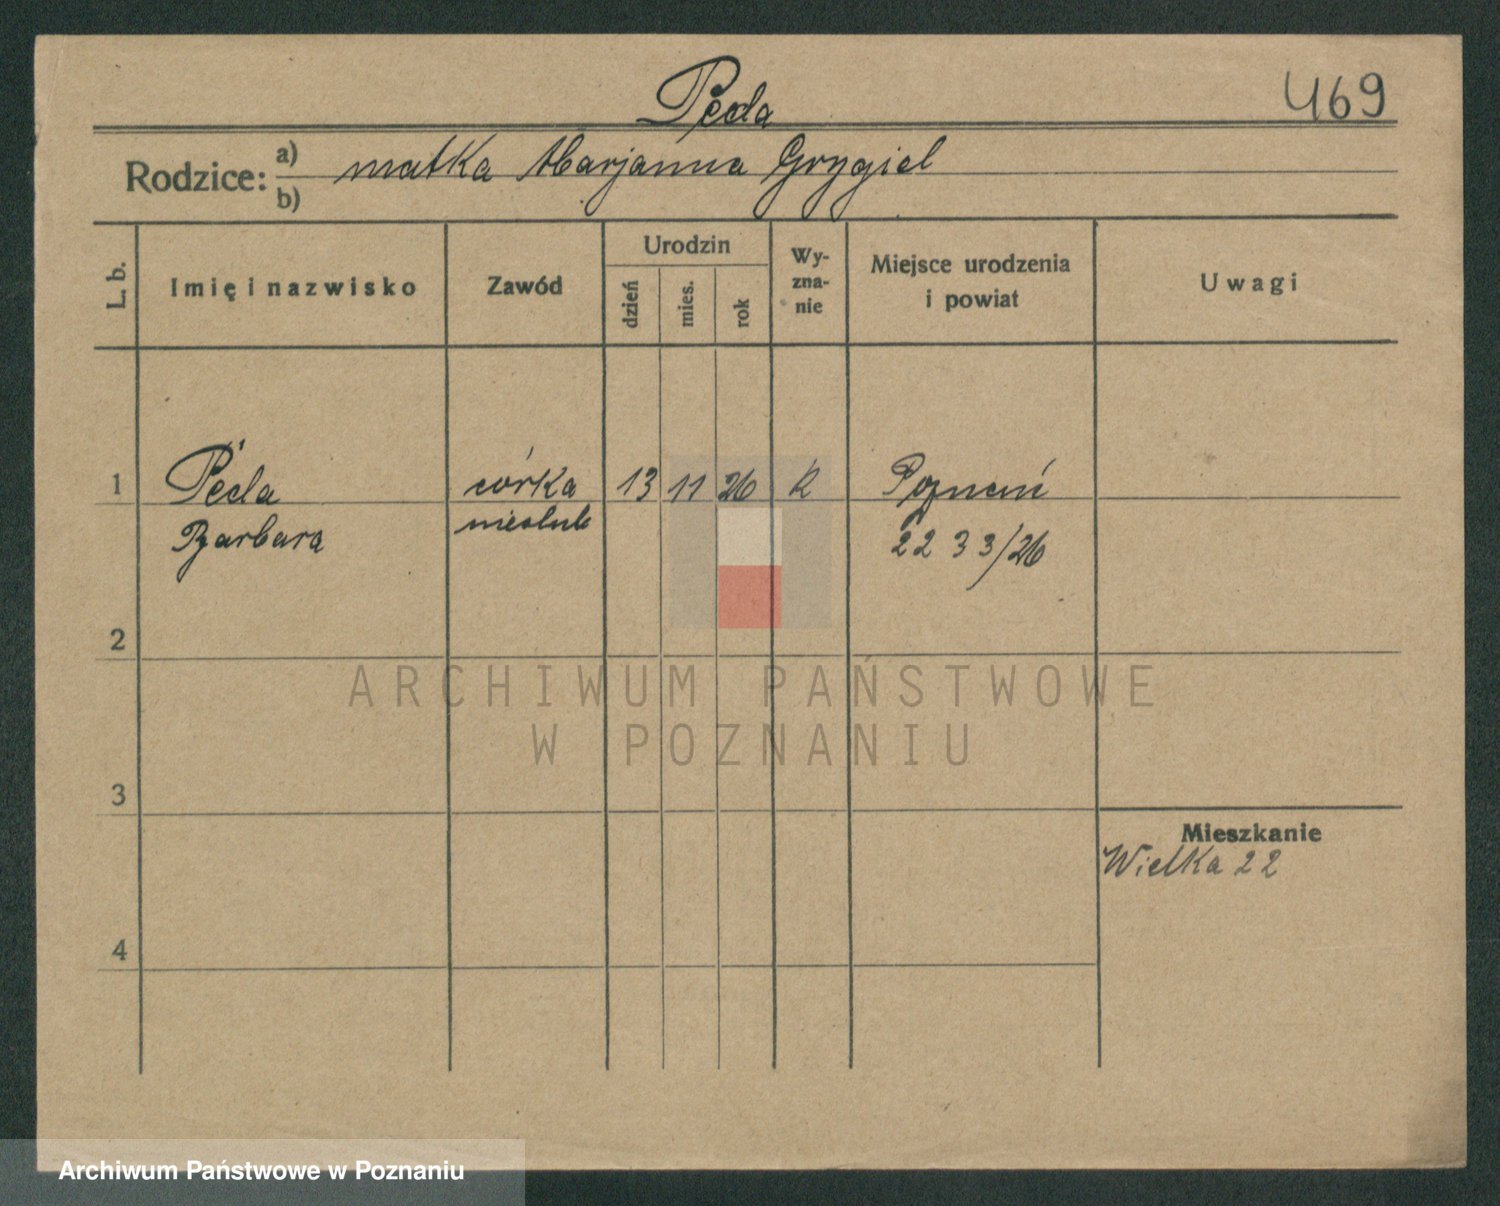 Peda
469
Rodzice: a) matka Marjanna Grygiel
b)
L. b.
Imię i nazwisko
Zawód
Urodzin
dzień
mies.
rok
Wy-
zna-
nie
Miejsce urodzenia
i powiat
Uwagi
1 Peda córka 13 11 26 k Poznań
Barbara nieślub 2233/26
2
ARCHIWUM PAŃSTWOWE
W POZNANIU
3
Mieszkanie
Wielka 22
4
Archiwum Państwowe w Poznaniu